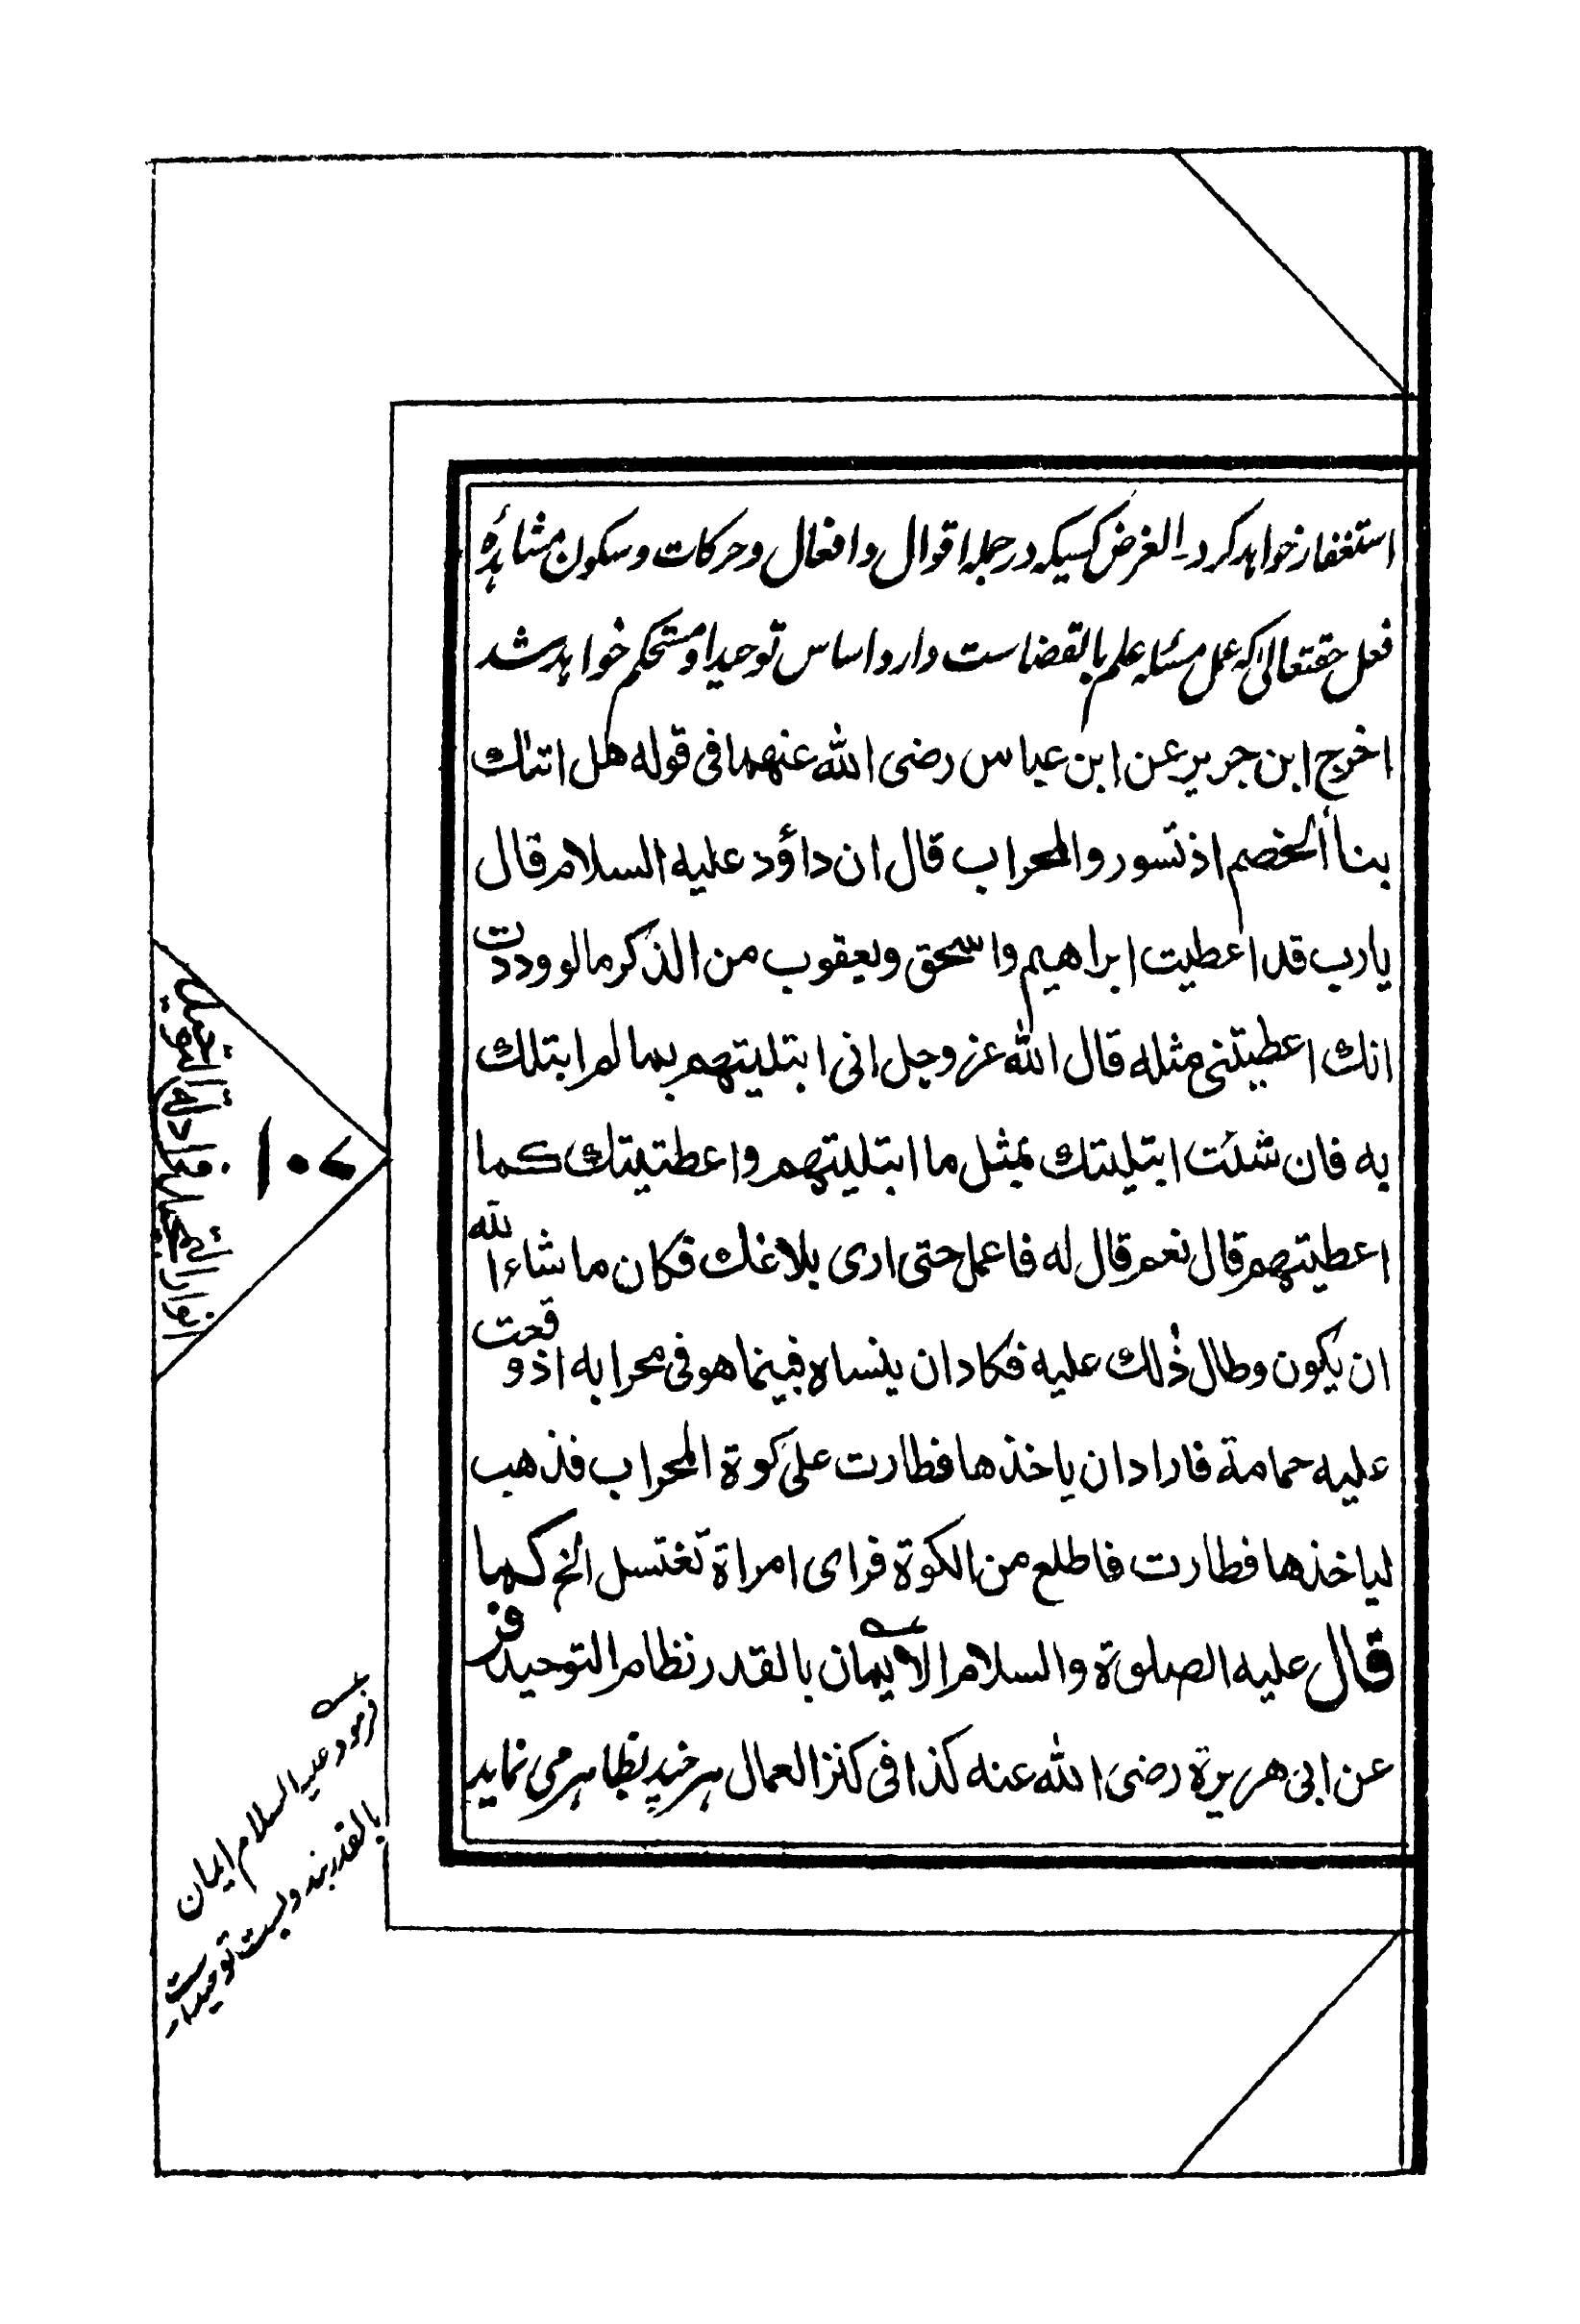 استغفار خواهد کرد۔ الغرض کسیکه در جمله اقوال و افعال و حرکات و سکون مشاهدۀ
فعل حقتعالیٰ که عمل مسئله علم بالقضاست دارد اساس توحید او مستحکم خواهد شد
اخرج ابن جرير عن ابن عباس رضى الله عنهما فى قوله هل اتٰىك
بنأ الخصم اذ تسوروا المحراب قال ان داؤد عليه السلام قال
يا رب قد اعطيت ابراهيم واسحٰق ويعقوب من الذكر ما لو وددت
انك اعطيتنى مثله قال الله عز وجل انى ابتليتهم بما لم ابتلك
به فان شئت ابتليتك بمثل ما ابتليتهم واعطتيتك كما
اعطيتهم قال نعم قال له فاعمل حتى ارى بلاغك فكان ما شاء الله
ان يكون وطال ذٰلك عليه فكاد ان ينساه فبينما هو فى محرابه اذ وقعت
عليه حمامة فاراد ان ياخذها فطارت على كوة المحراب فذهب
لياخذها فطارت فاطلع من الكوة فراى امراة تغتسل الخ كما
قال عليه الصلوة والسلام الايمان بالقدر نظام التوحيد فر
عن ابى هريرة رضى الله عنه كذا فى كنز العمال هر چند بظاهر می نماید
۱۰۷
فرمود علیه السلام ایمان
بالقدر بندوبست توحید است